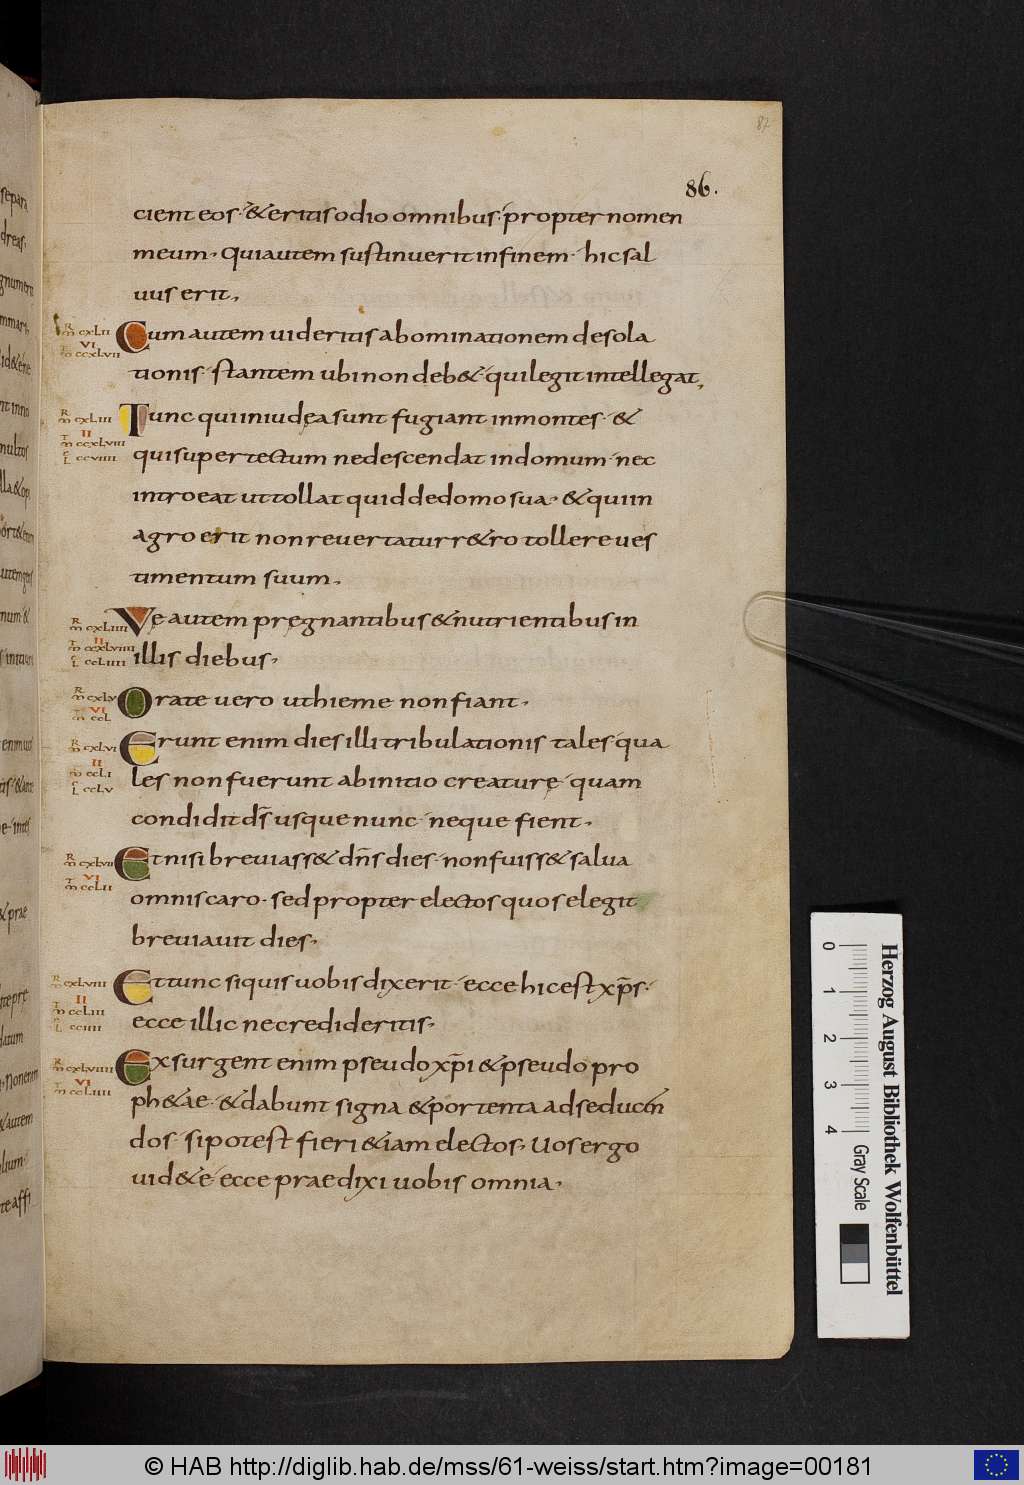 87
86.
cient eos· & eritis odio omnibus· propter nomen
meum· Qui autem sustinuerit in finem· hic sal
uus erit·
R
m cxlii
VI
T
m ccxlvii
Cum autem uideritis abominationem desola
tionis· stantem ubi non deb&· qui legit intellegat·
R
m cxliii
II
T
m ccxlviii
L ccviiii
Tunc qui in iudęa sunt fugiant in montes· &
qui super tectum ne descendat in domum· nec
introeat ut tollat quid de domo sua· & qui in
agro erit non reuertatur r&ro tollere ues
timentum suum·
R
m cxliiii
II
T
m ccxlviiii
L ccliiii
Vę autem pręgnantibus & nutrientibus in
illis diebus·
R
m cxlv
VI
T
m ccl
Orate uero ut hieme non fiant·
R
m cxlvi
II
m ccli
L cclv
Erunt enim dies illi tribulationis tales· qua
les non fuerunt ab initio creaturę· quam
condidit d̄s usque nunc· neque fient·
R
m cxlvii
VI
T
m cclii
Et nisi breuiass& dn̄s dies· non fuiss& salua
omnis caro· sed propter electos quos elegit
breuiauit dies·
R
m cxlviii
II
T
m ccliii
L cciiii
Et tunc siquis uobis dixerit· ecce hic est xp̄s·
ecce illic ne credideritis·
R
m cxlviiii
VI
T
m ccliiii
Exsurgent enim pseudo xp̄i & pseudo pro
ph&ae· & dabunt signa & portenta ad seducen
dos· si potest fieri & iam electos· Uos ergo
uid&e· ecce praedixi uobis omnia·
0 1 2 3 4
Gray Scale
Herzog August Bibliothek Wolfenbüttel
© HAB http://diglib.hab.de/mss/61-weiss/start.htm?image=00181